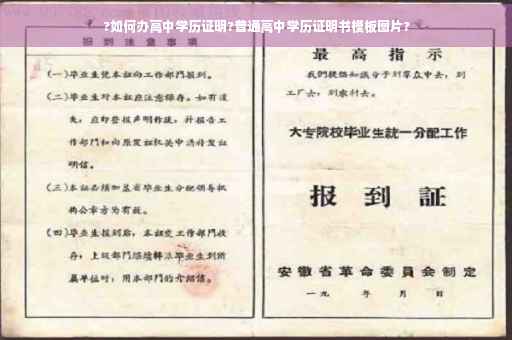 ?如何办高中学历证明?普通高中学历证明书模板图片?
报到注意事项
(一)毕业生凭本证向工作部门报到。
(二)毕业生对本证应注意保存。如有遗
失,应即登报声明作废,并报告工
作部门和向原发证机关申请补发证
明信。
(三)本证必须加盖省毕业生分配领导机
构公章方为有效。
(四)毕业生报到后,本证交工作部门收
存;上级部门继续转派毕业生到所
属单位时,用本部门的介绍信。
最高指示
我们提倡知识分子到群众中去,到
工厂去,到农村去。
大专院校毕业生统一分配工作
报到证
安徽省革命委员会制定
一九 年 月 日